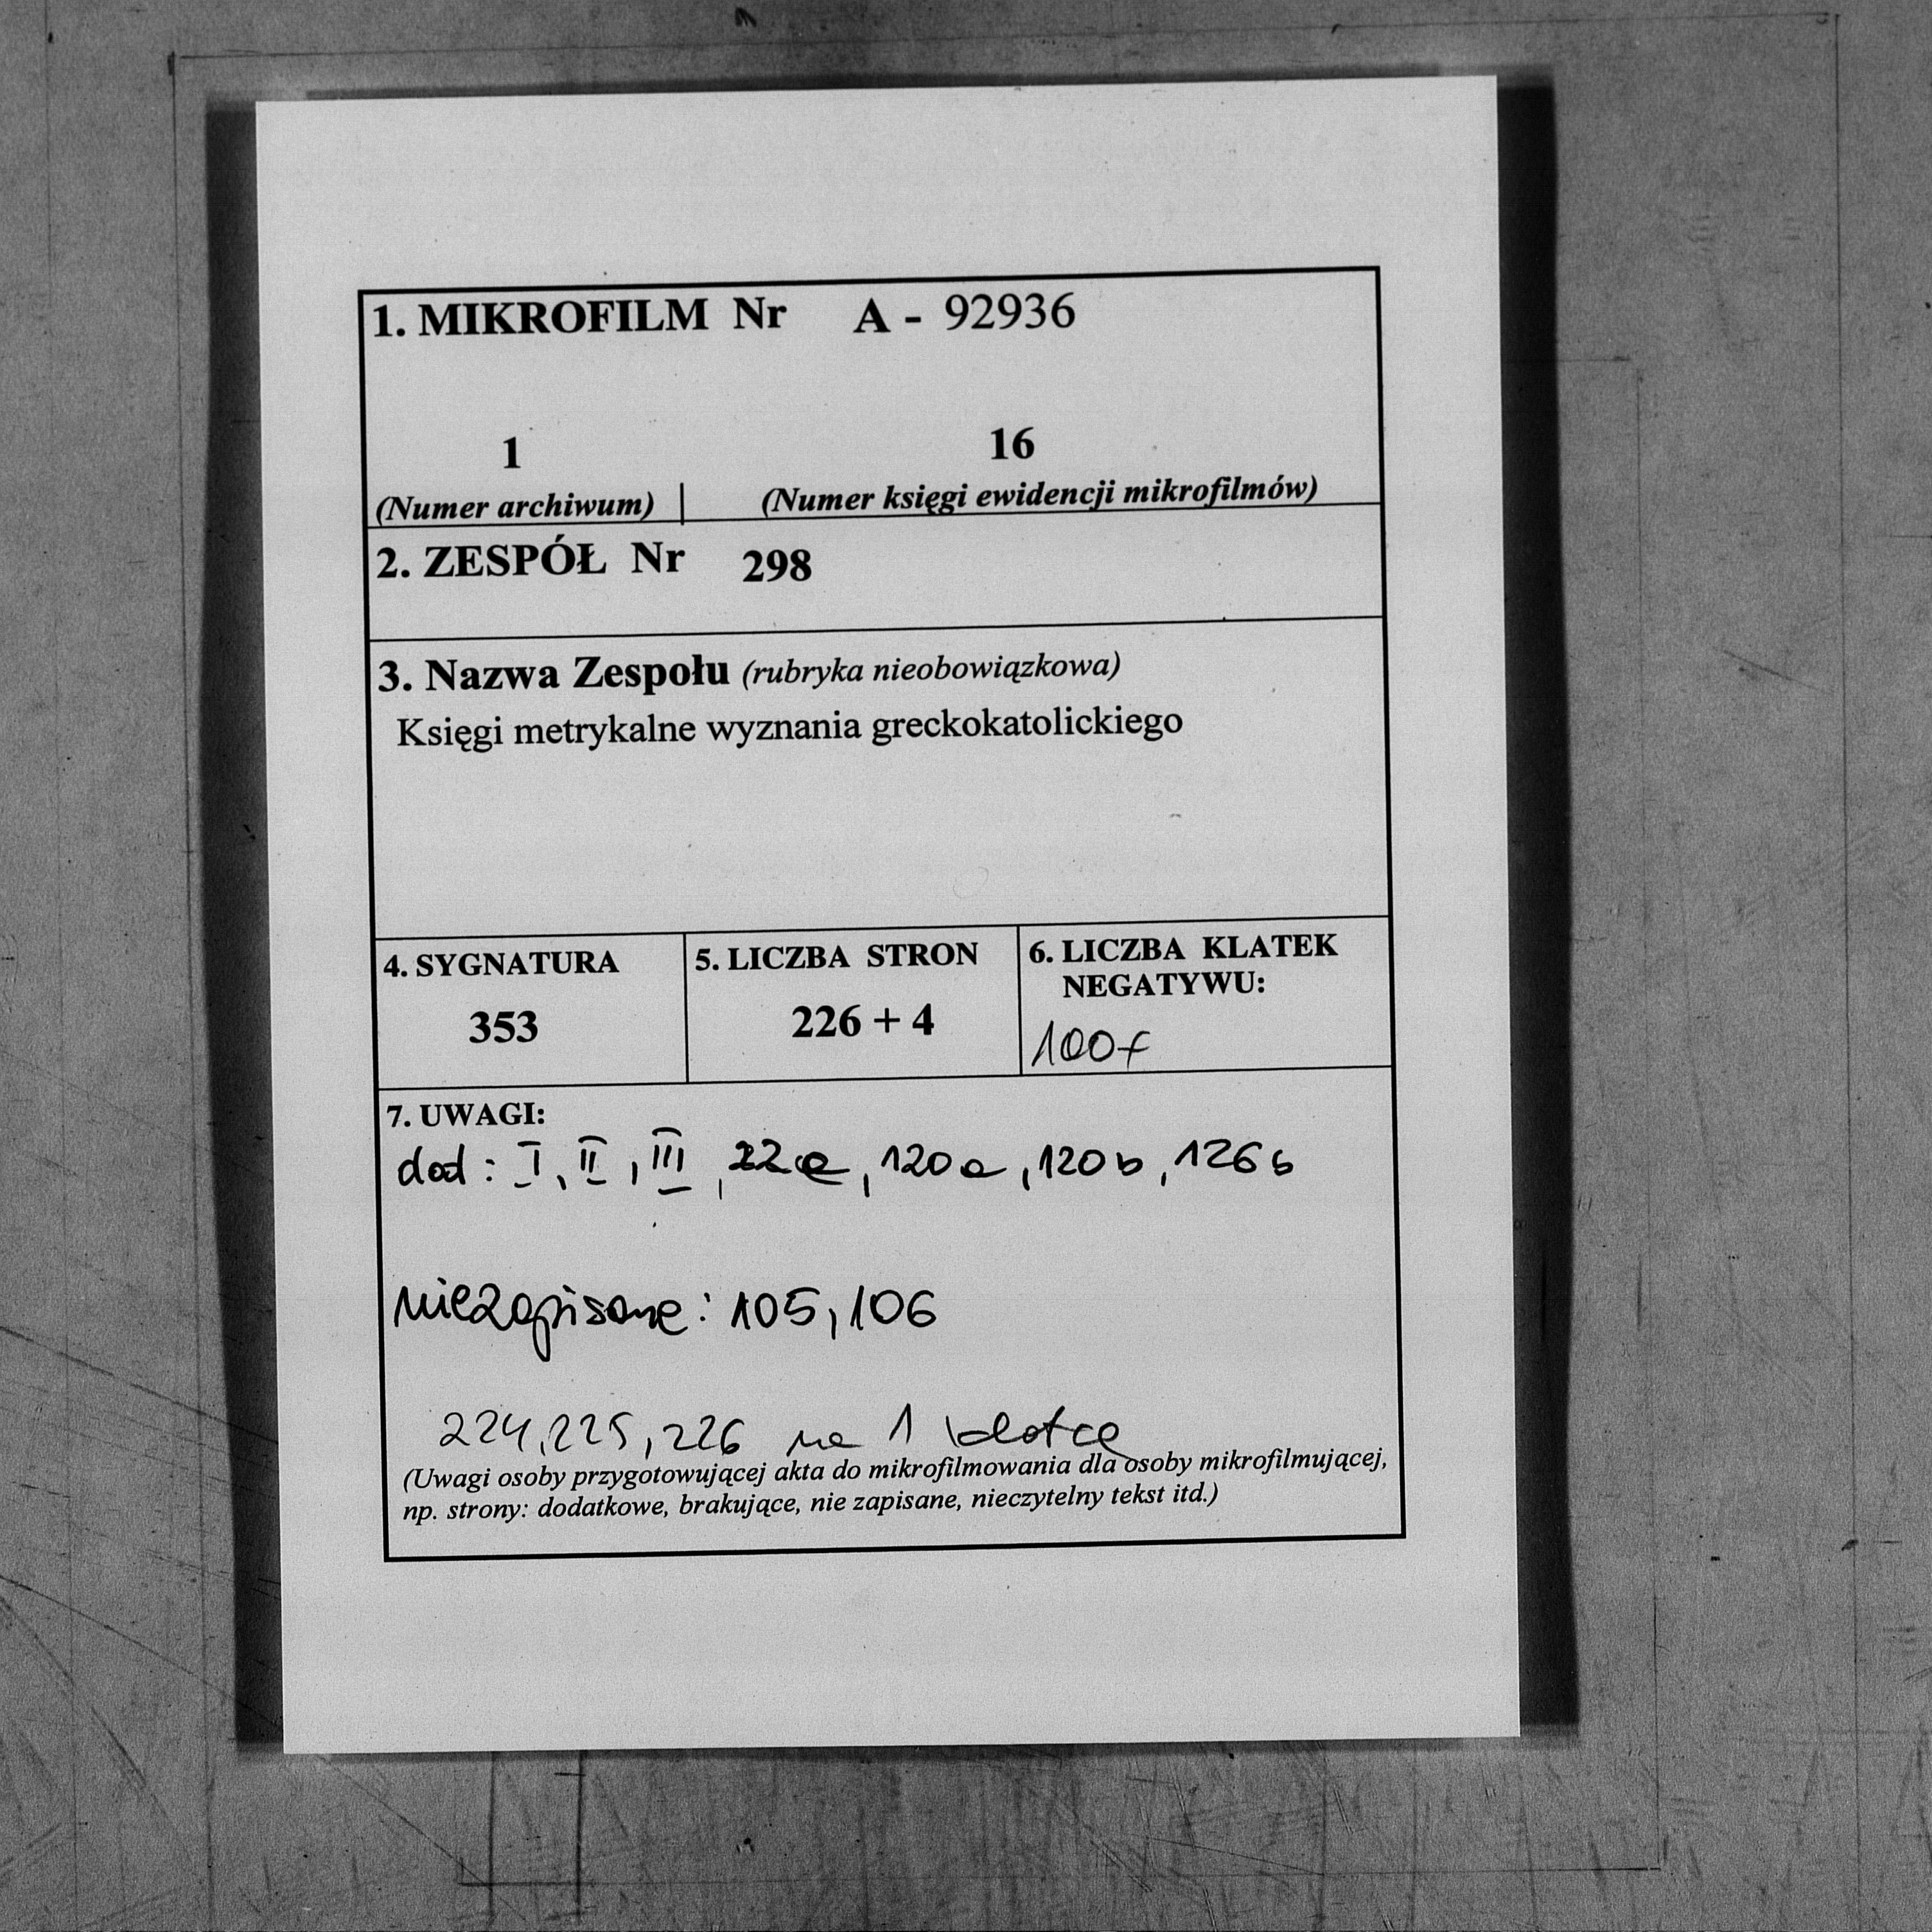 1. MIKROFILM Nr A - 92936
1 16
(Numer archiwum) | (Numer księgi ewidencji mikrofilmów)
2. ZESPÓŁ Nr 298
3. Nazwa Zespołu (rubryka nieobowiązkowa)
Księgi metrykalne wyznania greckokatolickiego
4. SYGNATURA
353
5. LICZBA STRON
226 + 4
6. LICZBA KLATEK
NEGATYWU:
100f
7. UWAGI:
dod: I, II, III, 22a, 120a, 120b, 126b
niezapisane: 105, 106
224, 225, 226 na 1 klatce
(Uwagi osoby przygotowującej akta do mikrofilmowania dla osoby mikrofilmującej,
np. strony: dodatkowe, brakujące, nie zapisane, nieczytelny tekst itd.)